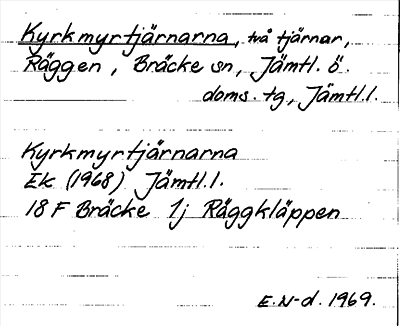 Kyrkmyrtjärnarna, två tjärnar,
Räggen, Bräcke sn, Jämtl. ö.
doms. tg, Jämtl.l.
Kyrkmyrtjärnarna
Ek (1968) Jämtl.l.
18 F Bräcke 1j Räggkläppen
E.N-d. 1969.